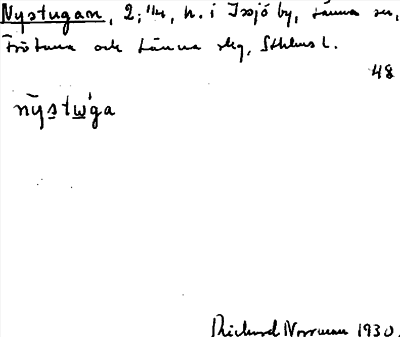 Nystugan, 2; 1/4, h. i Isjö by, Länna sn,
Frötuna och Länna skg, Sthlms l.
48
nȳstw'ga
Richard Norrman 1930.